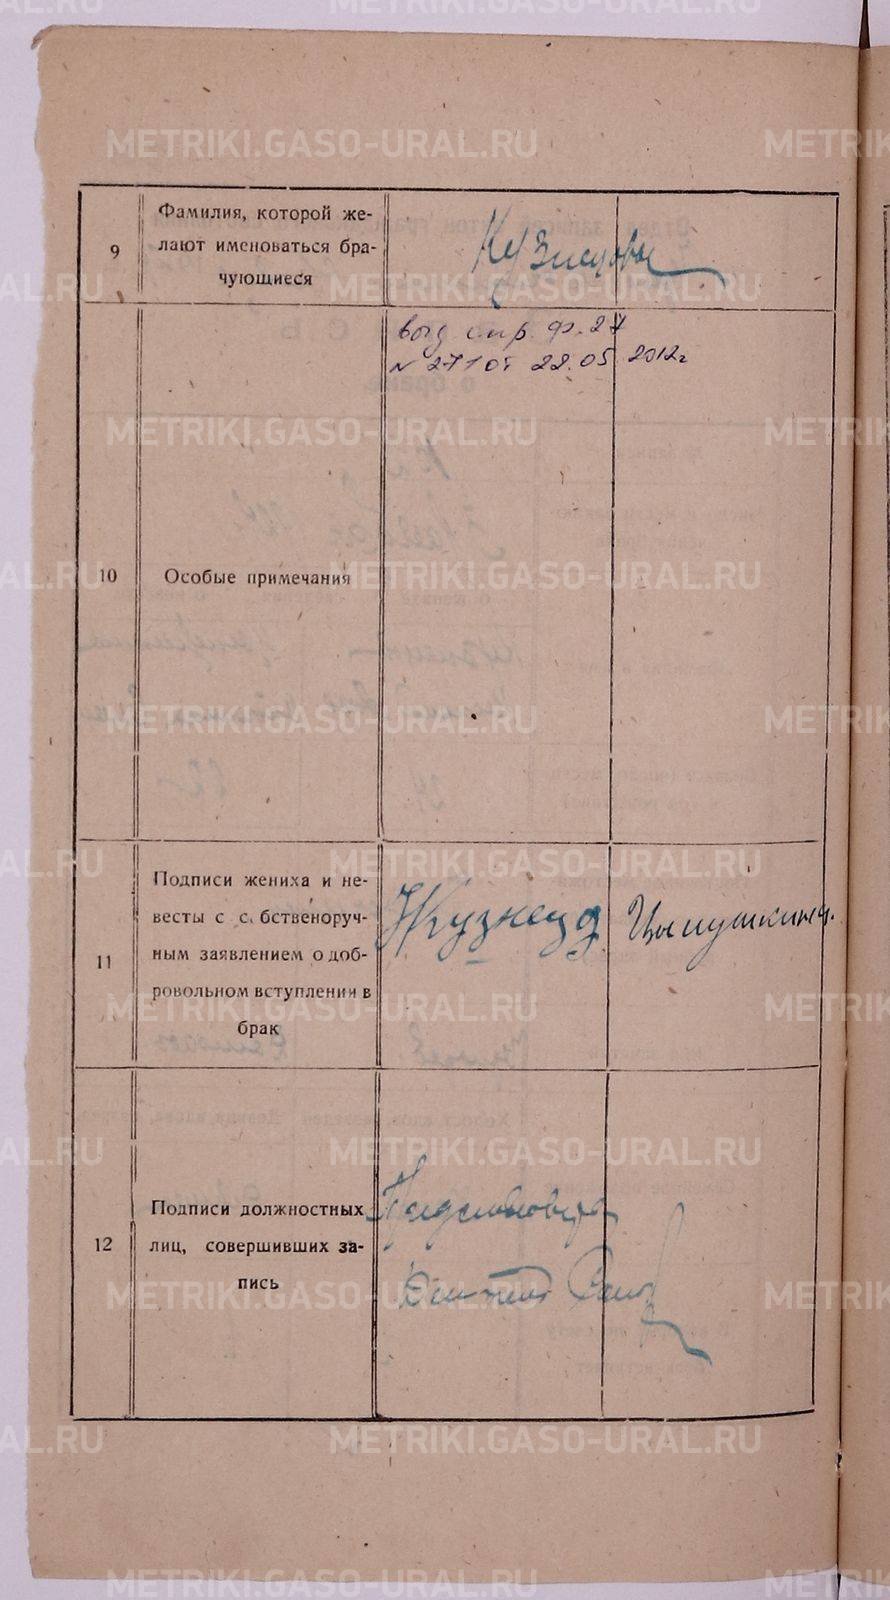 METRIKI.GASO-URAL.RU
9
Фамилия, которой же-
лают именоваться бра-
чующиеся
Кузнецовы
10
Особые примечания
выд спр. ф. 27
N 271 от 22.05 2012г
11
Подписи жениха и не-
весты с с бственоруч-
ным заявлением о доб-
ровольном вступлении в
брак
Кузнецо Цыпушкина.
12
Подписи должностных
лиц, совершивших за-
пись